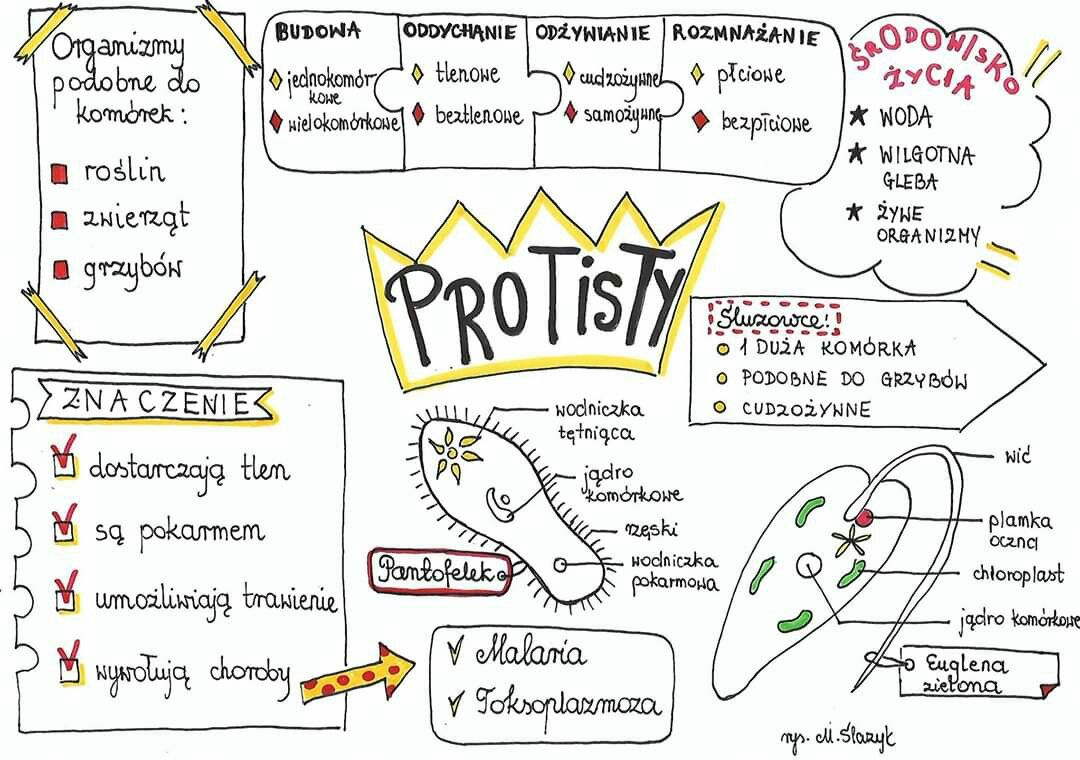 Organizmy
podobne do
komórek:
roślin
zwierząt
grzybów
BUDOWA
jednokomór-
kowe
wielokomórkowe
ODDYCHANIE
tlenowe
beztlenowe
ODŻYWIANIE
cudzożywne
samożywne
ROZMNAŻANIE
płciowe
bezpłciowe
ŚRODOWISKO
ŻYCIA
WODA
WILGOTNA
GLEBA
ŻYWE
ORGANIZMY
PROTISTY
Śluzowce!
1 DUŻA KOMÓRKA
PODOBNE DO GRZYBÓW
CUDZOŻYWNE
ZNACZENIE
dostarczają tlen
są pokarmem
umożliwiają trawienie
wywołują choroby
Malaria
Toksoplazmoza
wodniczka
tętniąca
jądro
komórkowe
rzęski
wodniczka
pokarmowa
Pantofelek
wić
plamka
oczna
chloroplast
jądro komórkowe
Euglena
zielona
rys. M. Ślazyk